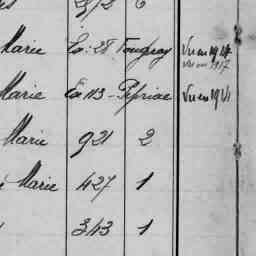 Marie La: 28 Tougray Vu en 1914
Vu en 1917
Marie Ex 113 - Pipriac Vu en 1921
Marie 921 2
Marie 427 1
343 1